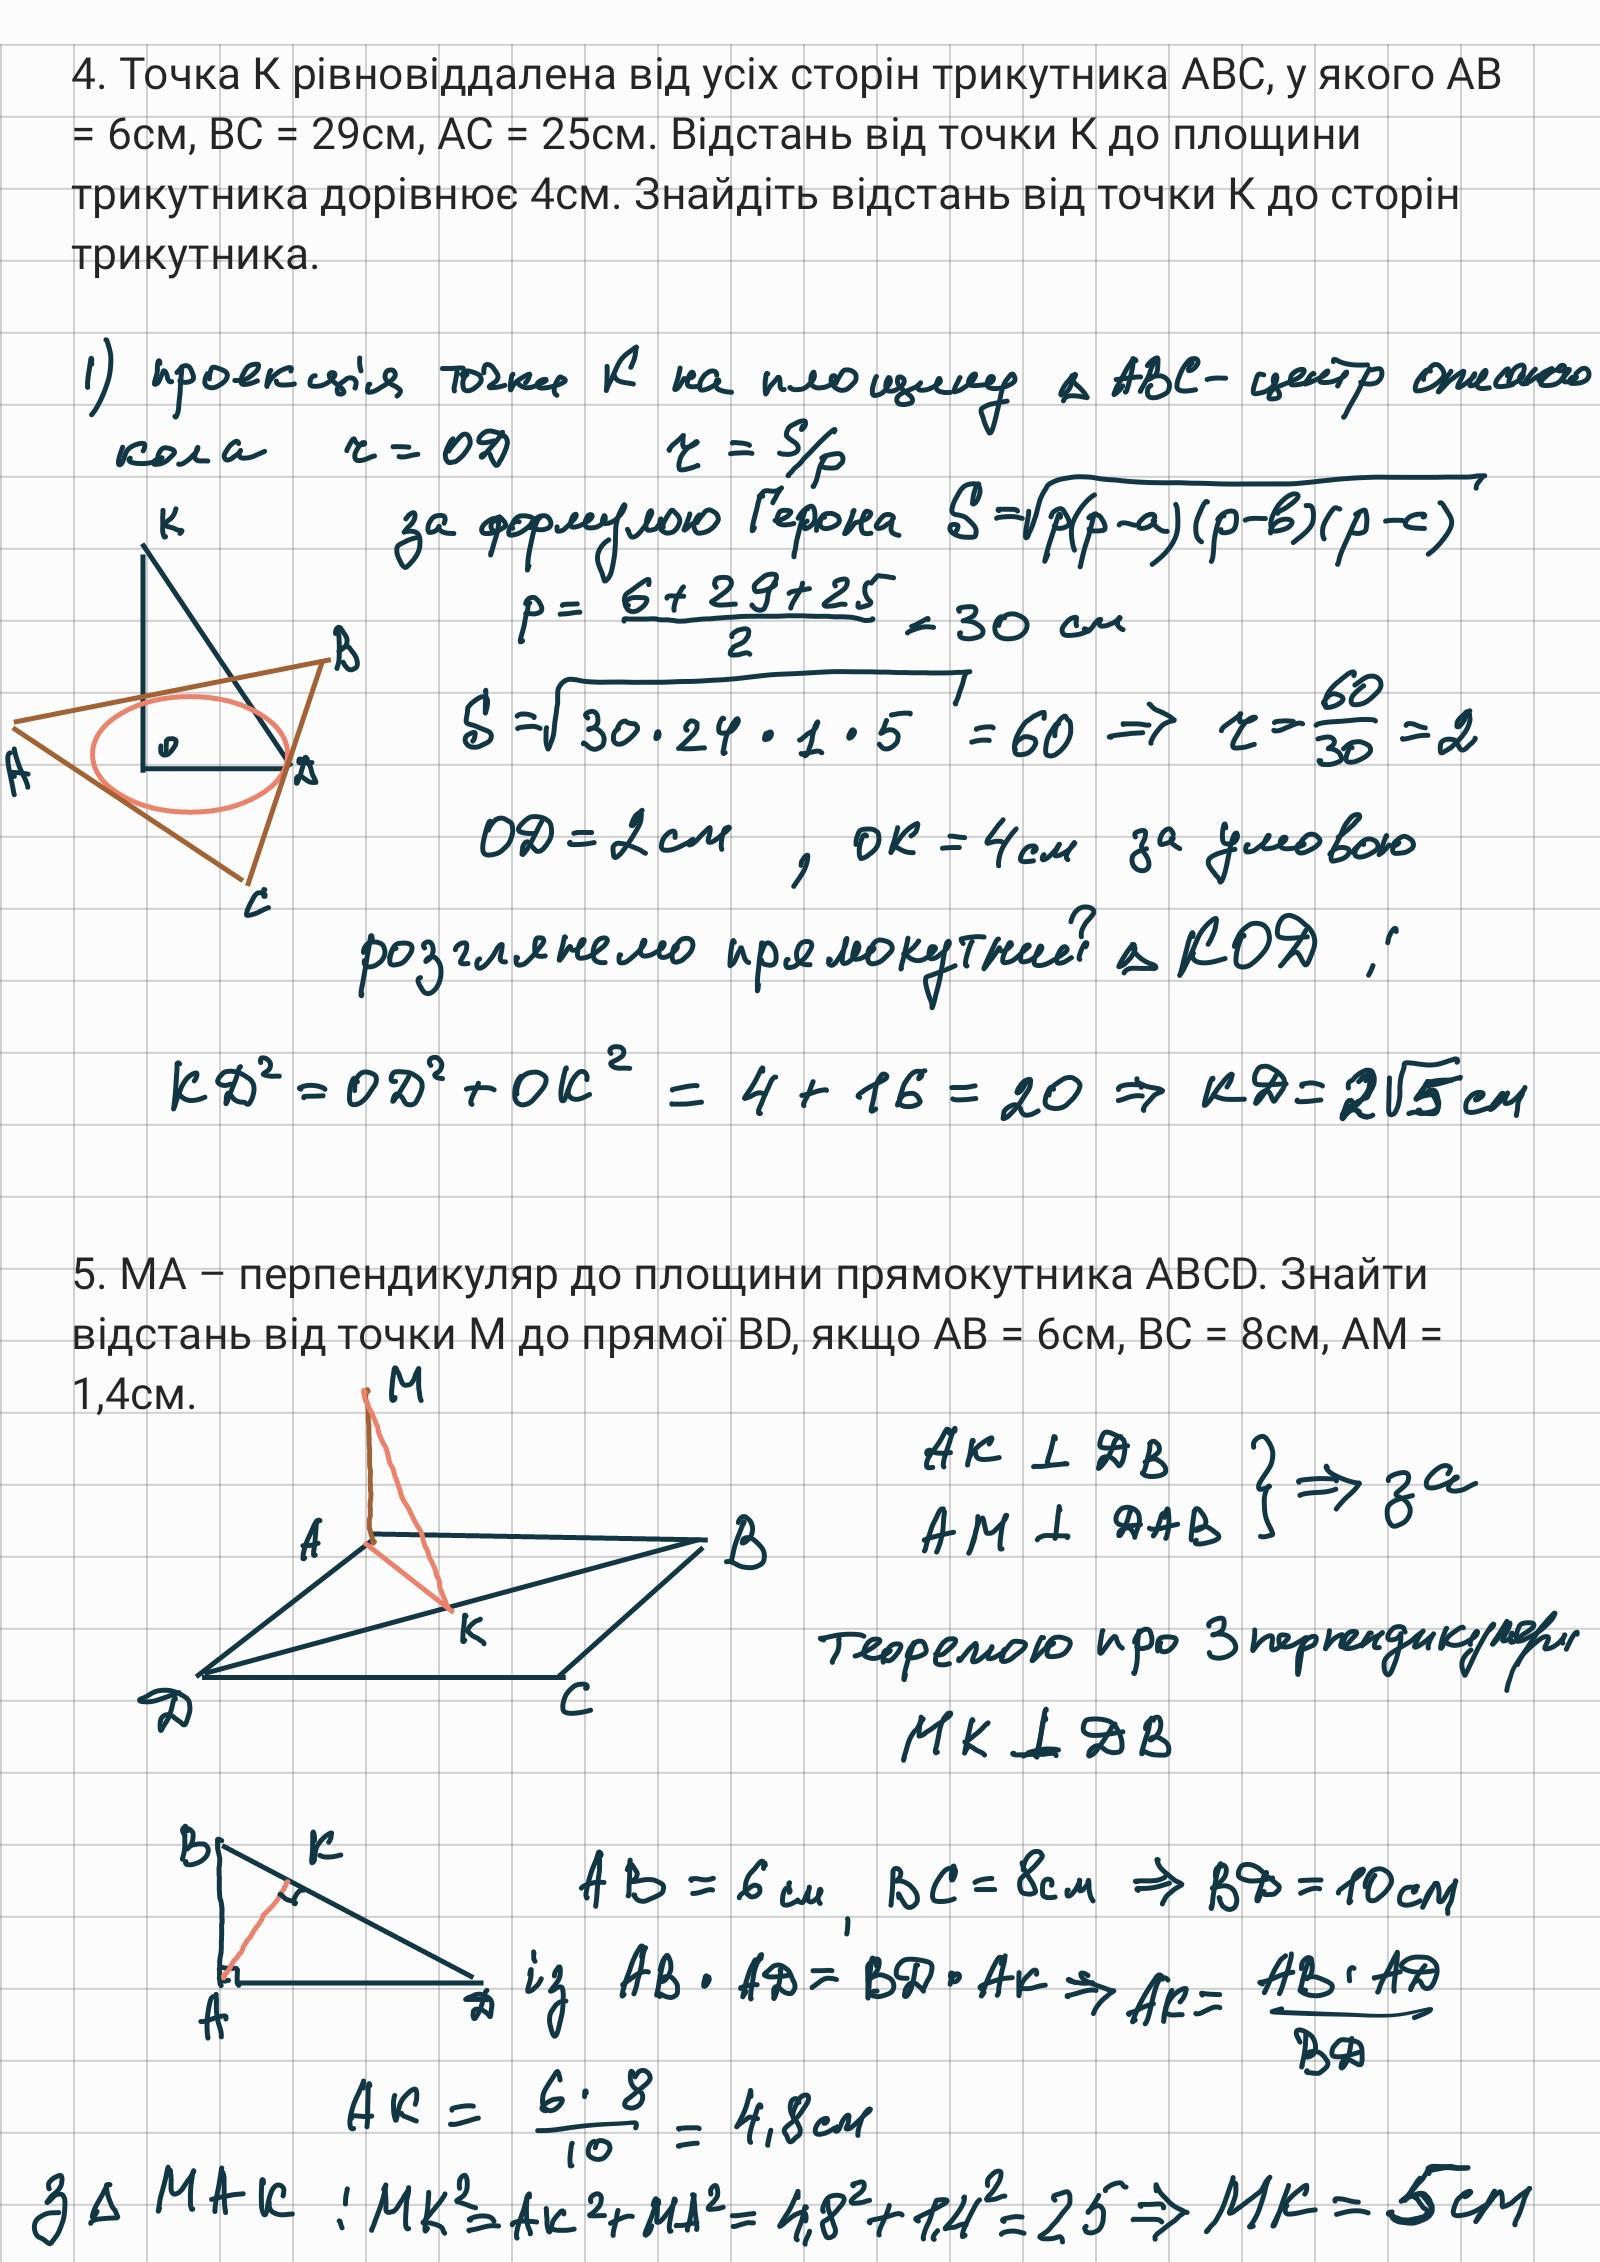 4. Точка К рівновіддалена від усіх сторін трикутника АВС, у якого АВ
= 6см, ВС = 29см, АС = 25см. Відстань від точки К до площини
трикутника дорівнює 4см. Знайдіть відстань від точки К до сторін
трикутника.
1) проекція точки К на площину △ АВС - центр описаного
кола r = OD r = S/p
за формулою Герона S = √p(p-a)(p-b)(p-c)
K
p = (6 + 29 + 25)/2 = 30 см
B
S = √30 · 24 · 1 · 5 = 60 ⇒ r = 60/30 = 2
A O D
OD = 2 см , OK = 4 см за умовою
C
розглянемо прямокутний △ KOD :
KD² = OD² + OK² = 4 + 16 = 20 ⇒ KD = 2√5 см
5. МА – перпендикуляр до площини прямокутника ABCD. Знайти
відстань від точки М до прямої BD, якщо АВ = 6см, ВС = 8см, АМ =
1,4см.
M
AK ⊥ DB
AM ⊥ DAB } ⇒ за
A B
K
теоремою про 3 перпендикуляри
D C
MK ⊥ DB
B K
AB = 6 см, BC = 8 см ⇒ BD = 10 см
A D
із AB · AD = BD · AK ⇒ AK = (AB · AD)/BD
AK = (6 · 8)/10 = 4,8 см
З △ MAK : MK² = AK² + MA² = 4,8² + 1,4² = 25 ⇒ MK = 5 см